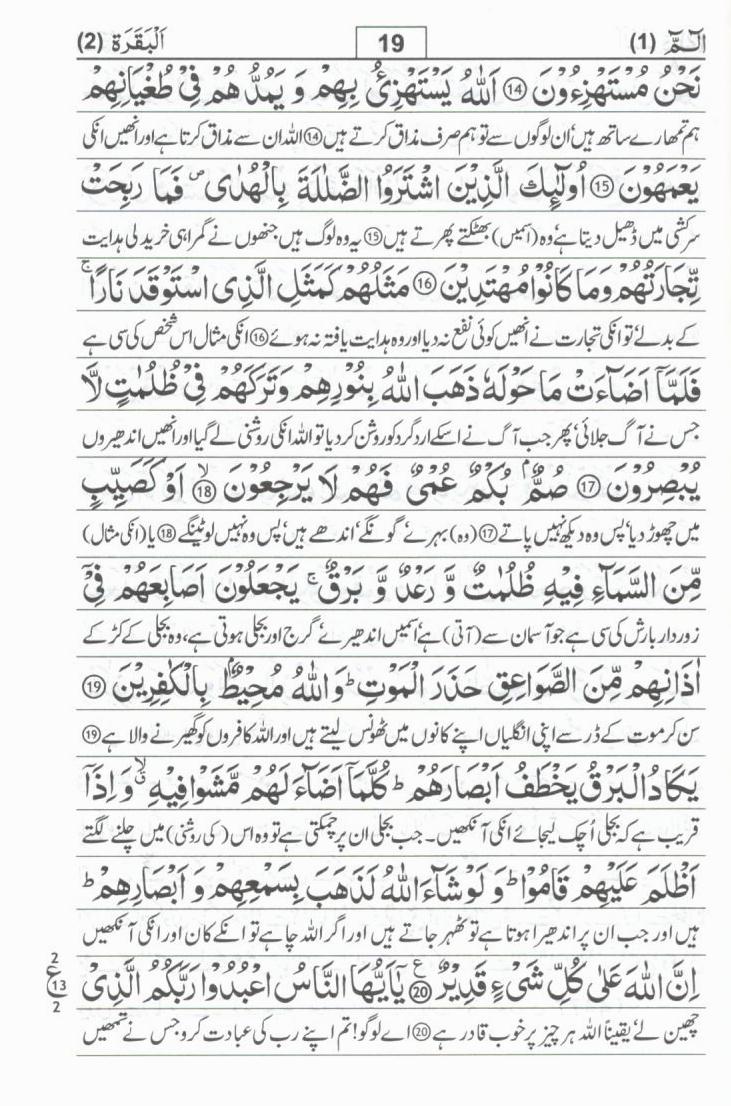 الٓمّٓ (1) 19 اَلْبَقَرَة (2)
نَحْنُ مُسْتَهْزِءُوْنَ ⑭ اَللّٰهُ يَسْتَهْزِئُ بِهِمْ وَ يَمُدُّ هُمْ فِيْ طُغْيَانِهِمْ
ہم تمھارے ساتھ ہیں، اُن لوگوں سے تو ہم صرف مذاق کرتے ہیں ⑭ اللہ ان سے مذاق کرتا ہے اور انھیں انکی
يَعْمَهُوْنَ ⑮ اُولٰٓئِكَ الَّذِيْنَ اشْتَرَوُا الضَّلٰلَةَ بِالْهُدٰى ص فَمَا رَبِحَتْ
سرکشی میں ڈھیل دیتا ہے، وہ (اسمیں) بھٹکتے پھرتے ہیں ⑮ یہ وہ لوگ ہیں جنھوں نے گمراہی خرید لی ہدایت
تِّجَارَتُهُمْ وَمَا كَانُوْا مُهْتَدِيْنَ ⑯ مَثَلُهُمْ كَمَثَلِ الَّذِى اسْتَوْقَدَ نَارًا ج
کے بدلے، تو انکی تجارت نے انھیں کوئی نفع نہ دیا اور وہ ہدایت یافتہ نہ ہوئے ⑯ انکی مثال اس شخص کی سی ہے
فَلَمَّآ اَضَآءَتْ مَا حَوْلَهٗ ذَهَبَ اللّٰهُ بِنُوْرِهِمْ وَتَرَكَهُمْ فِيْ ظُلُمٰتٍ لَّا
جس نے آگ جلائی، پھر جب آگ نے اسکے ارد گرد کو روشن کر دیا تو اللہ انکی روشنی لے گیا اور انھیں اندھیروں
يُبْصِرُوْنَ ⑰ صُمٌّۢ بُكْمٌ عُمْيٌ فَهُمْ لَا يَرْجِعُوْنَ ⑱ لا اَوْ كَصَيِّبٍ
میں چھوڑ دیا، پس وہ دیکھ نہیں پاتے ⑰ (وہ) بہرے، گونگے، اندھے ہیں، پس وہ نہیں لوٹینگے ⑱ یا (انکی مثال)
مِّنَ السَّمَآءِ فِيْهِ ظُلُمٰتٌ وَّ رَعْدٌ وَّ بَرْقٌ ج يَجْعَلُوْنَ اَصَابِعَهُمْ فِيْٓ
زوردار بارش کی سی ہے جو آسمان سے (آتی) ہے، اسمیں اندھیرے، گرج اور بجلی ہوتی ہے، وہ بجلی کے کڑکے
اٰذَانِهِمْ مِّنَ الصَّوَاعِقِ حَذَرَ الْمَوْتِ ط وَاللّٰهُ مُحِيْطٌۢ بِالْكٰفِرِيْنَ ⑲
سن کر موت کے ڈر سے اپنی انگلیاں اپنے کانوں میں ٹھونس لیتے ہیں اور اللہ کافروں کو گھیرنے والا ہے ⑲
يَكَادُ الْبَرْقُ يَخْطَفُ اَبْصَارَهُمْ ط كُلَّمَآ اَضَآءَ لَهُمْ مَّشَوْا فِيْهِ وَ اِذَآ
قریب ہے کہ بجلی اُچک لیجائے انکی آنکھیں۔ جب بجلی ان پر چمکتی ہے تو وہ اس (کی روشنی) میں چلنے لگتے
اَظْلَمَ عَلَيْهِمْ قَامُوْا ط وَ لَوْ شَآءَ اللّٰهُ لَذَهَبَ بِسَمْعِهِمْ وَ اَبْصَارِهِمْ ط
ہیں اور جب ان پر اندھیرا ہوتا ہے تو ٹھہر جاتے ہیں اور اگر اللہ چاہے تو انکے کان اور انکی آنکھیں
اِنَّ اللّٰهَ عَلٰى كُلِّ شَيْءٍ قَدِيْرٌ ⑳ ع يٰٓاَيُّهَا النَّاسُ اعْبُدُوْا رَبَّكُمُ الَّذِيْ
2 ع 13 2
چھین لے، یقیناً اللہ ہر چیز پر خوب قادر ہے ⑳ اے لوگو! تم اپنے رب کی عبادت کرو جس نے تمھیں